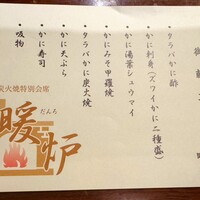 ・タラバかに酢
・かに刺身(ズワイかに二種盛)
・かに湯葉シュウマイ
・かにみそ甲羅焼
・タラバかに炭火焼
・かに天ぷら
・かに寿司
・吸物
炭火焼特別会席
暖炉
だんろ